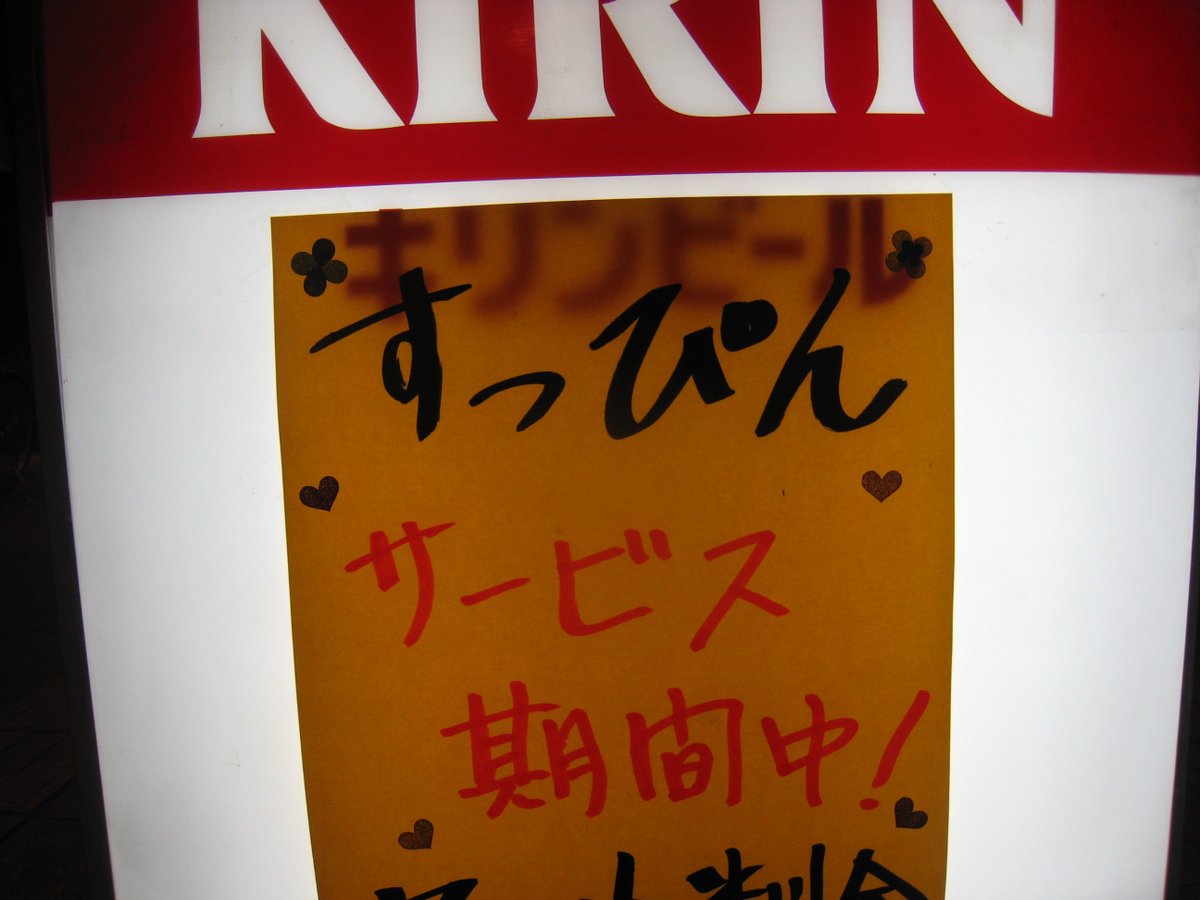 KIRIN
キリンビール
すっぴん
サービス
期間中!